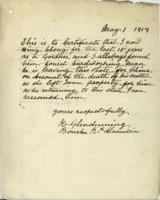 May. 1 1917
This is to Certificate that I now
Long for the last 15 years
as a Gardner and I allways found
him honest hardworking man
he is leaving this state for China
on account of the death of his mother
as she left some property for him
as he returning to this state I can
recomend him
yours respectfully
H. Glendinning
Bourke St